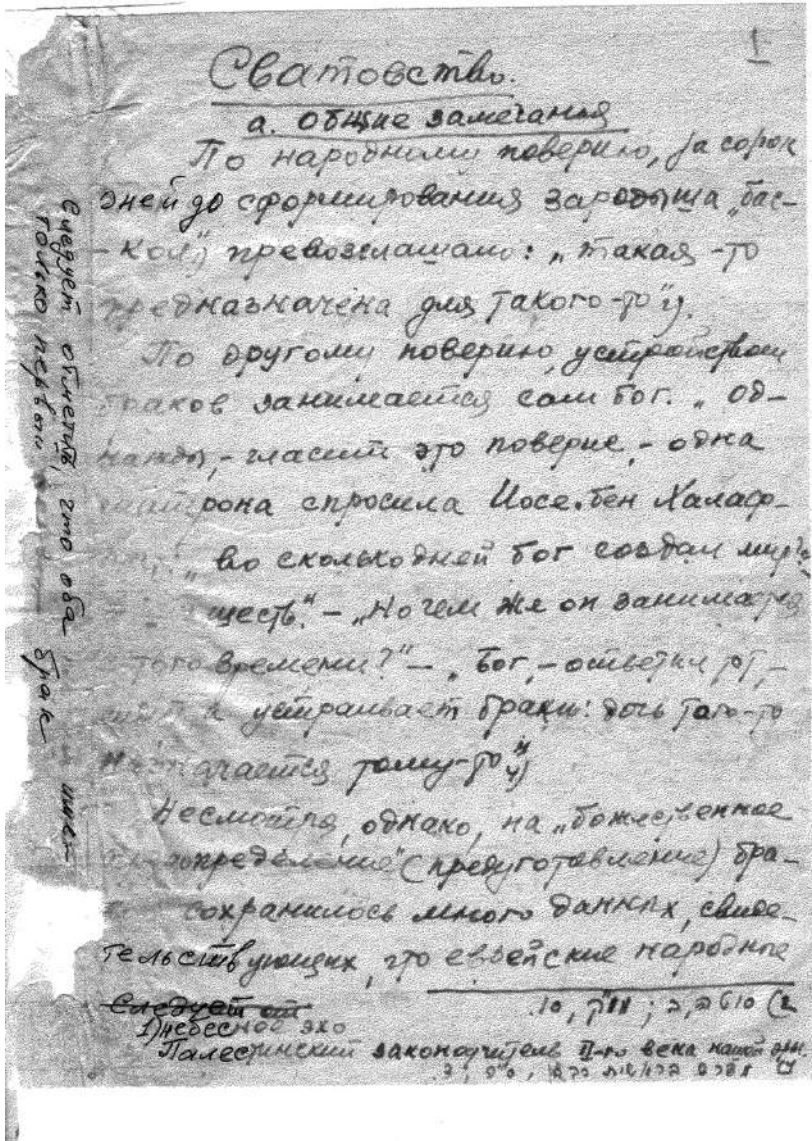 1
Сватовство.
а. Общие замечания
По народному поверию, за сорок
дней до сформирования зародыша „бас-
- кол" превозглашало: „такая-то
предназначена для такого-то"
По другому поверию, устройством
браков занимается сам бог. „Од-
нажды, - гласит это поверие, - одна
матрона спросила Иосе. бен Халаф-
„во сколько дней бог создал мир?"
шесть." - „Но чем же он занимается
того времени?" - „Бог, - ответил тот, -
и устраивает браки: дочь того-то
назначается тому-то" 4)
Несмотря, однако, на „божественное
предопределение" (предуготовление) бра-
сохранилось много данных, свиде-
тельствующих, что еврейские народные
Следует от
1) небесное эхо
Палестинский законоучитель II-го века нашей эры.
Следует отметить, что оба
только первый брак имеет